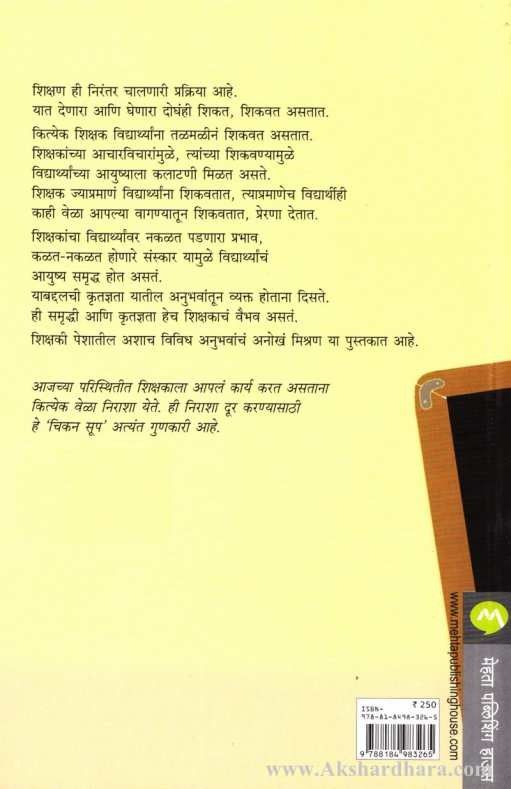 शिक्षण ही निरंतर चालणारी प्रक्रिया आहे.
यात देणारा आणि घेणारा दोघंही शिकत, शिकवत असतात.
कित्येक शिक्षक विद्यार्थ्यांना तळमळीनं शिकवत असतात.
शिक्षकांच्या आचारविचारांमुळे, त्यांच्या शिकवण्यामुळे
विद्यार्थ्यांच्या आयुष्याला कलाटणी मिळत असते.
शिक्षक ज्याप्रमाणं विद्यार्थ्यांना शिकवतात, त्याप्रमाणेच विद्यार्थीही
काही वेळा आपल्या वागण्यातून शिकवतात, प्रेरणा देतात.
शिक्षकांचा विद्यार्थ्यांवर नकळत पडणारा प्रभाव,
कळत-नकळत होणारे संस्कार यामुळे विद्यार्थ्यांचं
आयुष्य समृद्ध होत असतं.
याबद्दलची कृतज्ञता यातील अनुभवांतून व्यक्त होताना दिसते.
ही समृद्धी आणि कृतज्ञता हेच शिक्षकाचं वैभव असतं.
शिक्षकी पेशातील अशाच विविध अनुभवांचं अनोखं मिश्रण या पुस्तकात आहे.
आजच्या परिस्थितीत शिक्षकाला आपलं कार्य करत असताना
कित्येक वेळा निराशा येते. ही निराशा दूर करण्यासाठी
हे ‘चिकन सूप’ अत्यंत गुणकारी आहे.
www.mehtapublishinghouse.com
मेहता पब्लिशिंग हाऊस
₹ 250
ISBN-
978-81-8498-326-5
9 788184 983265
www.Akshardhara.com